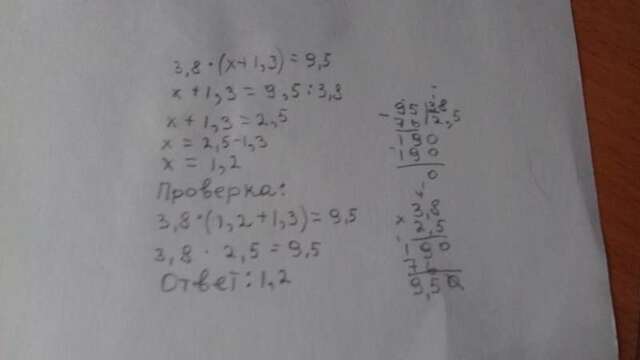 3,8·(x+1,3)=9,5
x+1,3=9,5:3,8
x+1,3=2,5
x=2,5-1,3
x=1,2
Проверка:
3,8·(1,2+1,3)=9,5
3,8·2,5=9,5
Ответ:1,2
190
190
0
×3,8
2,5
190
9,50